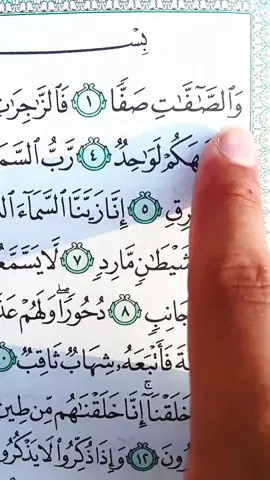 بِسْـ
وَٱلصَّٰٓفَّٰتِ صَفّٗا ١ فَٱلزَّٰجِرَٰتِ
لَوَٰحِدٞ ٤ رَّبُّ ٱلسَّمَ
٥ إِنَّا زَيَّنَّا ٱلسَّمَآءَ
مَّارِدٖ ٧ لَّا يَسَّمَّعُ
جَانِبٖ ٨ دُحُورٗاۖ وَلَهُمۡ عَذَ
فَأَتۡبَعَهُۥ شِهَابٞ ثَاقِبٞ
خَلَقۡنَآۚ إِنَّا خَلَقۡنَٰهُم مِّن طِينٖ
١٢ وَإِذَا ذُكِّرُواْ لَا يَذۡكُرُو